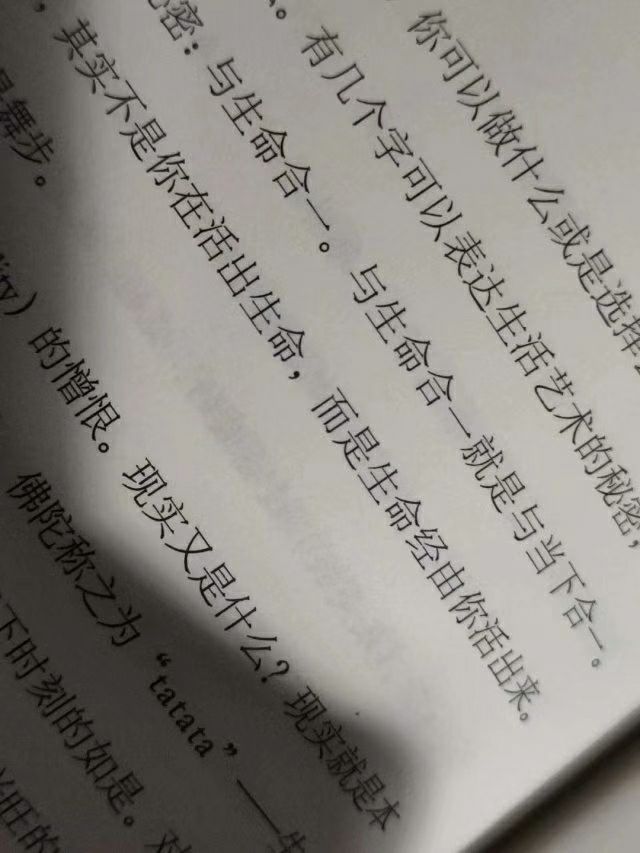 你可以做什么或是选择
。有几个字可以表达生活艺术的秘密，
密：与生命合一。与生命合一就是与当下合一。
，其实不是你在活出生命，而是生命经由你活出来。
是舞步。
ity）的憎恨。现实又是什么？现实就是本
佛陀称之为“tatata”——
下时刻的如是。对